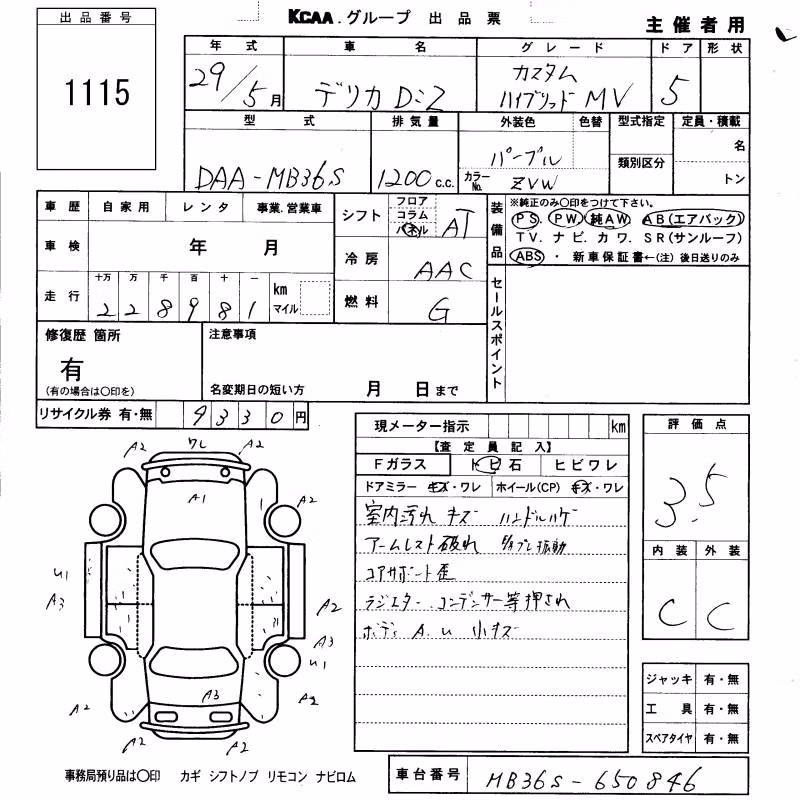 出品番号
1115
KCAA.グループ 出品票
主催者用
年式 車名 グレード ドア 形状
29/5月 デリカD:2 カスタム
ハイブリッドMV 5
型式 排気量 外装色 色替 型式指定 定員・積載
DAA-MB36S 1200c.c. パープル 名
カラーNo. ZVW 類別区分 トン
車歴 自家用 レンタ 事業.営業車
車検 年 月
走行 十万 万 千 百 十 一
228981 km マイル
シフト フロア コラム パネル AT
冷房 AAC
燃料 G
装備品
※純正のみ〇印をつけて下さい。
PS. PW. 純AW. AB(エアバック)
TV. ナビ. カワ. SR(サンルーフ)
ABS ・ 新車保証書←(注) 後日送りのみ
セールスポイント
修復歴 箇所
有
(有の場合は〇印を)
注意事項
名変期日の短い方 月 日まで
リサイクル券 有・無 9330円
現メーター指示 km
【査定員記入】
Fガラス トビ石 ヒビワレ
ドアミラー キズ・ワレ ホイール(CP) キズ・ワレ
室内汚れ キズ ハンドルハゲ
アームレスト破れ 振動
コアサポート歪
ラジエター.コンデンサー等押され
ボディ A.U 小キズ
評価点
3.5
内装 外装
C C
ジャッキ 有・無
工具 有・無
スペアタイヤ 有・無
A2 ワレ A2
A2 A1 A2
U1
A3 A2
A3
U1
A2 A3 A2
A2 A2
事務局預り品は〇印 カギ シフトノブ リモコン ナビロム
車台番号 MB36S-650846